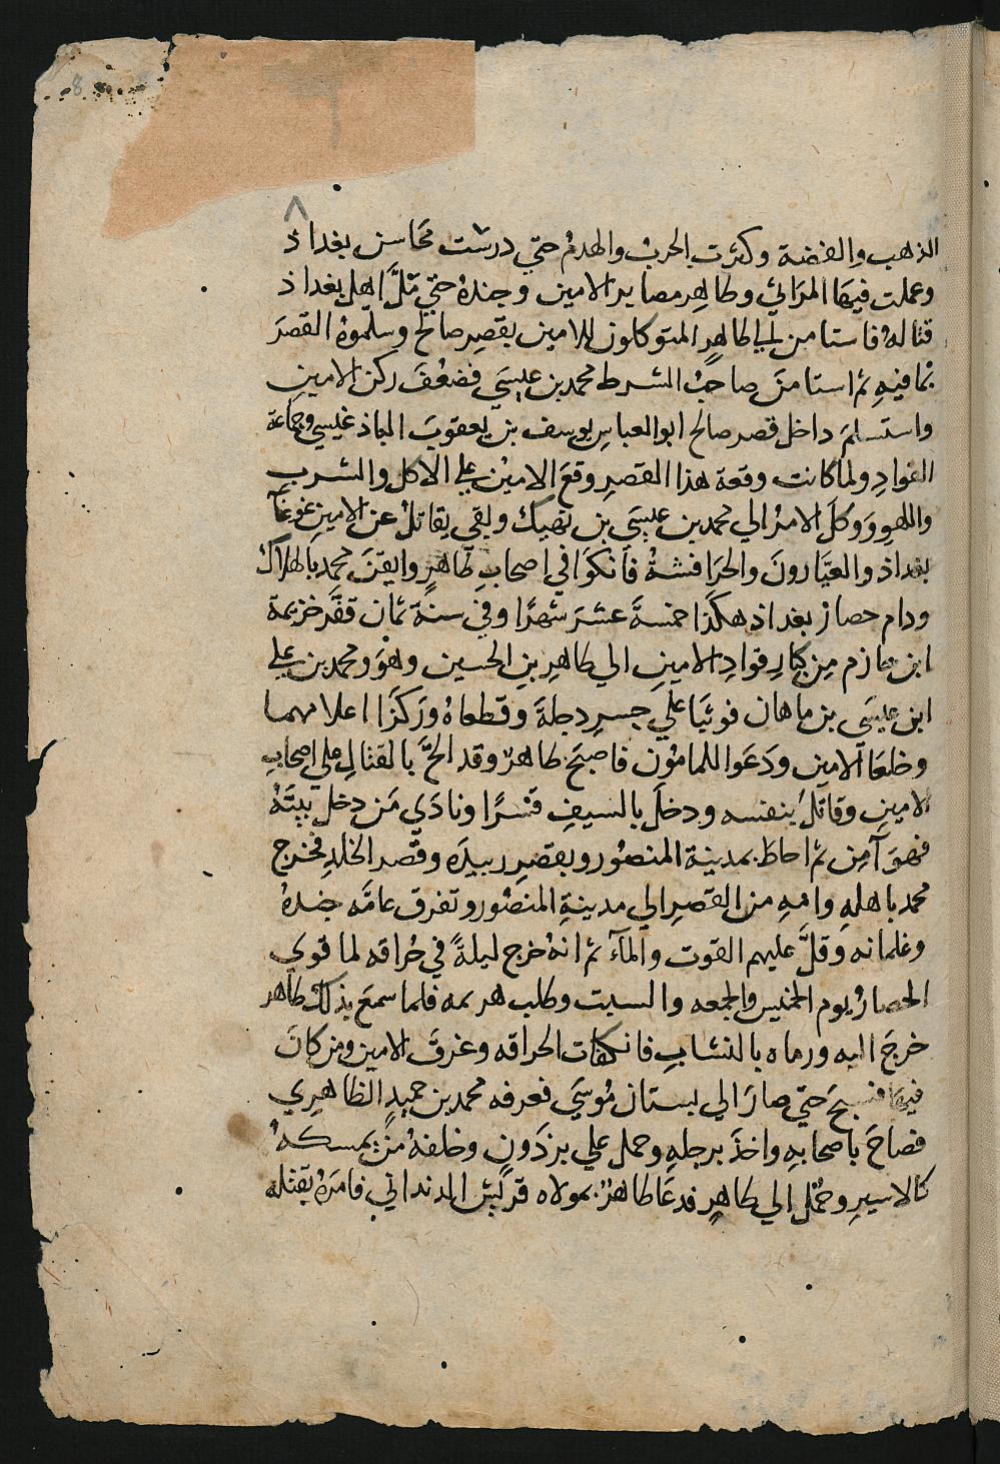 ٨
الذهب والفضة وكثرت الحرب والهدم حتي درست محاسن بغداذ
وعملت فيها المراثي وطاهر مصابر الامين وجنده حتي مَلَّ اهل بغداذ
قتاله فاستامن الي طاهرٍ المتوكلون للامين بقصرِ صالح وسلموه القصرَ
بما فيهِ ثم استامنَ صاحبُ الشرط محمد بن عيسَي فضعُفَ ركن الامينِ
واستسلمَ داخل قصر صالح ابو العباسِ يوسف بن يعقوبَ الباذغيسي وجماعة
القوادِ ولما كانت وقعة هذا القصرِ وقعَ الامينُ علي الاكل والشرب
واللهوِ ووكلَ الامرَ الي محمد بن عيسَي بن نهيك وبقي يقاتلُ عن الامينِ غوغآ
بغداذ والعيَّارونَ والحرَافشةُ فأنكوَا في اصحابِ طاهرٍ وايقنَ محمد بالهلاك
ودام حصار بغداذ هكذا خمسةَ عشرَ شهرًا وفي سنة ثمان قفَّر خزيمة
ابن خازم مِن كبارِ قوادِ الامينِ الي طاهرِ بنِ الحسين وهوَ ومحمد بن علي
ابن عيسَي بن ماهان فوثبَا علي جسرِ دجلةَ وقطعاهُ ورَكزَا اعلامهما
وخلعَا الامينِ ودَعَوا للمامُونِ فاصبحَ طاهرٌ وقد الحَّ بالقتالِ علي اصحابِ
الامينِ وقاتلَ بنفسه ودخلَ بالسيفِ قسرًا ونادَي مَن دخل بيتَهُ
فهوَ آمِن ثم احاطَ بمدينة المنصُور وبقصرِ زبيدَه وقصر الخلدِ فخرج
محمد باهلهِ وامهِ من القصرِ الي مدينةِ المنصُور وتفرق عامَّه جندهُ
وغلمانه وَقلَّ عليهم القوت والمآء ثم انهُ خرج ليلةً في حُراقه لما قوي
الحصارُ يوم الخميس والجمعه والسبت وطلب هرثمه فلما سمعَ بذلك طاهر
خرجَ اليه ورماه بالنشابِ فانكفات الحراقه وغرقَ الامين ومن كانَ
فيها فسبحَ حتي صارَ الي بستان مُوسَي فعرفه محمد بن حميدٍ الظاهري
فصاحَ باصحابهِ واخذَ برجلهِ وحمل علي برذَونٍ وخلفهُ مَنْ يمسكهُ
كالاسيرِ وحُمل الي طاهرٍ فدعَا طاهرٌ بمولاه قريش الدنداني فامرَهُ بقتله